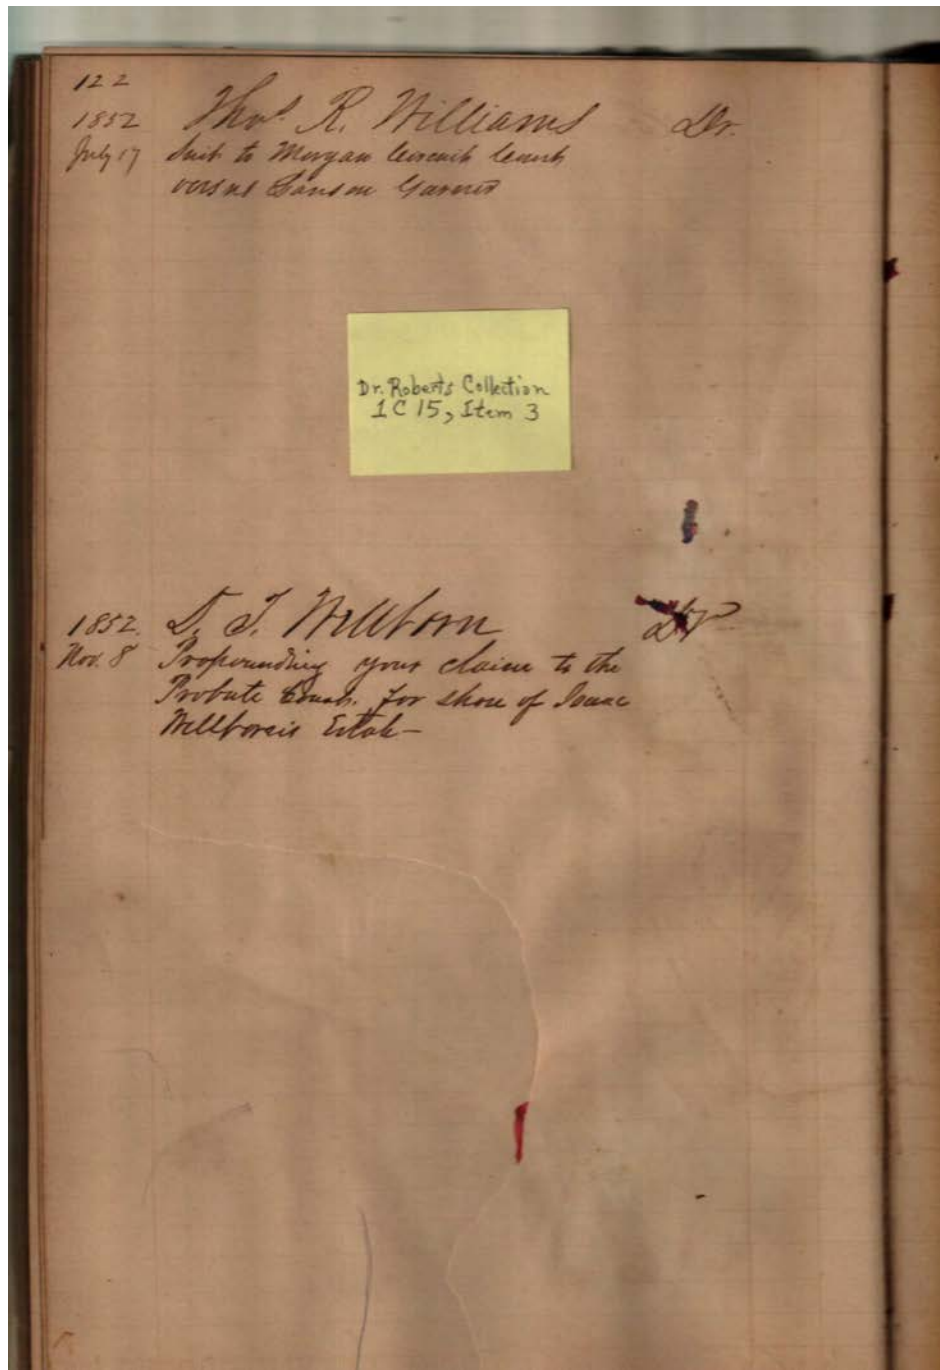 122
1852 Thos. R. Williams Dr.
July 17 Suit to Morgan Circuit Court
versus Garner
Dr. Roberts Collection
1 C 15, Item 3
1852. D. T. Wellborn Dr
Nov. 8 Propounding your claim to the
Probate Court. for share of Isaac
Wellborn's Estate —